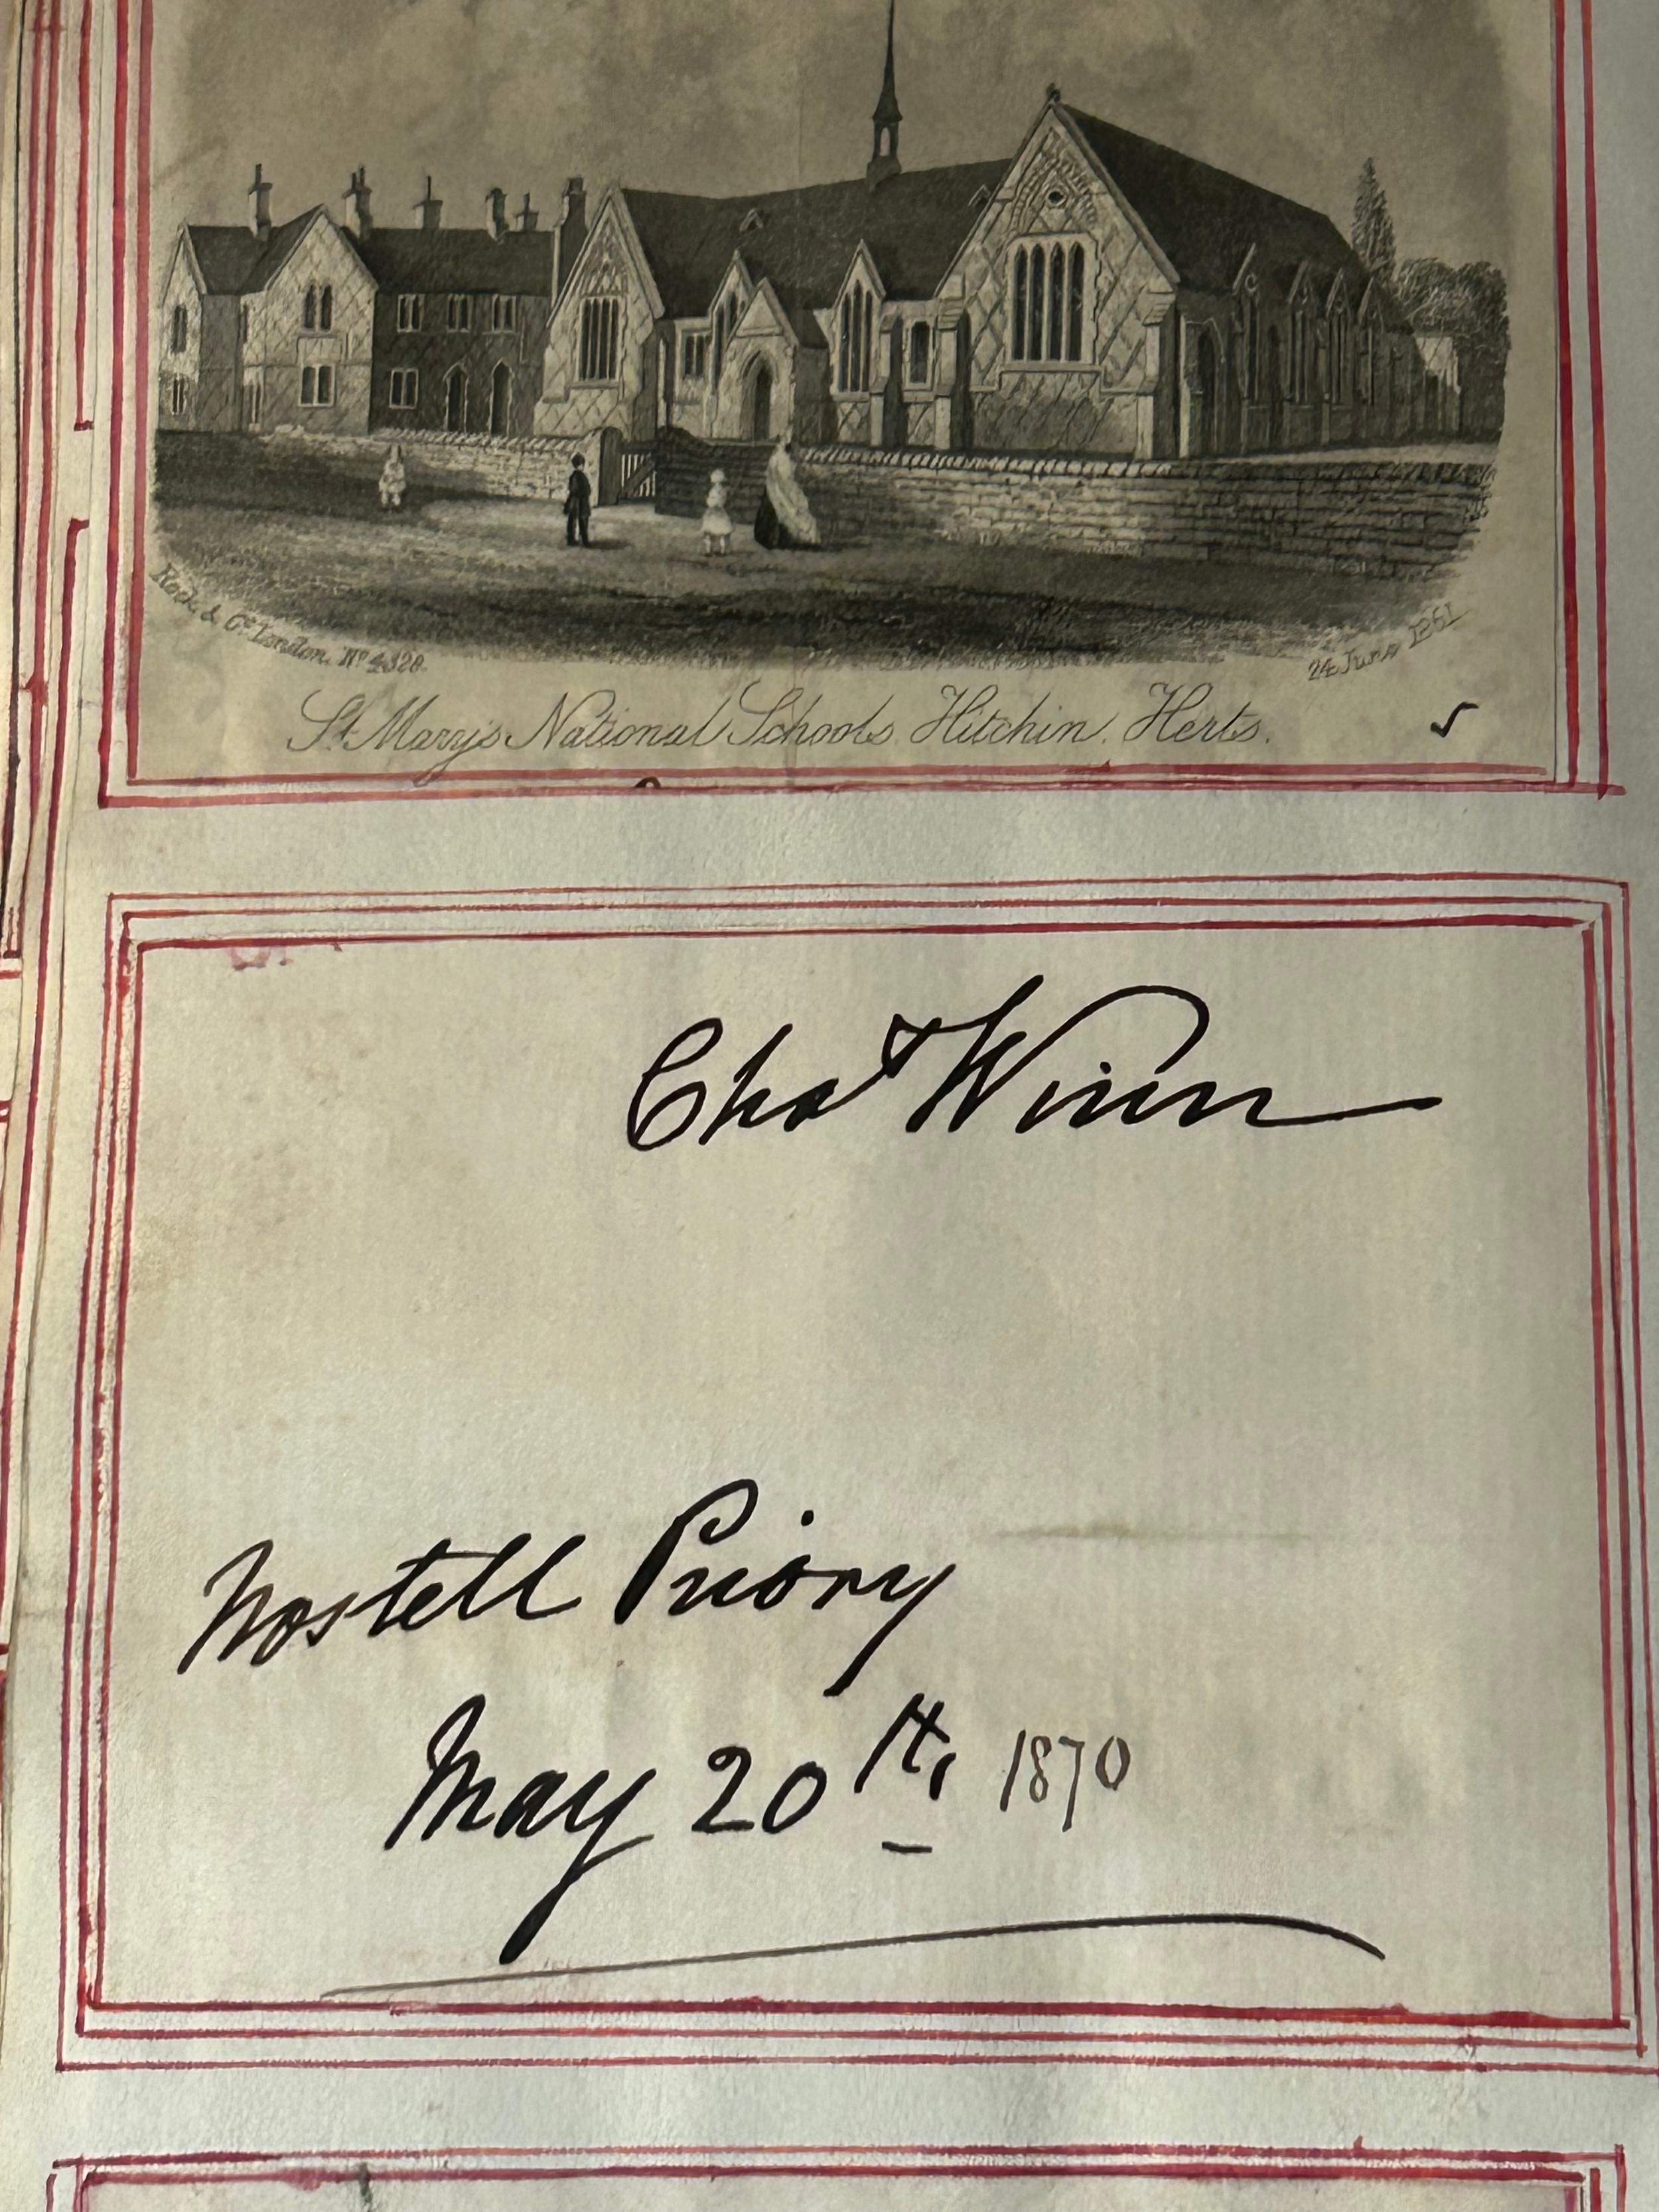 Rock & Co. London. No. 4320.
24 June 1861
St. Mary's National Schools Hitchin. Herts.
Chas Winn
Nostell Priory
May 20th, 1870